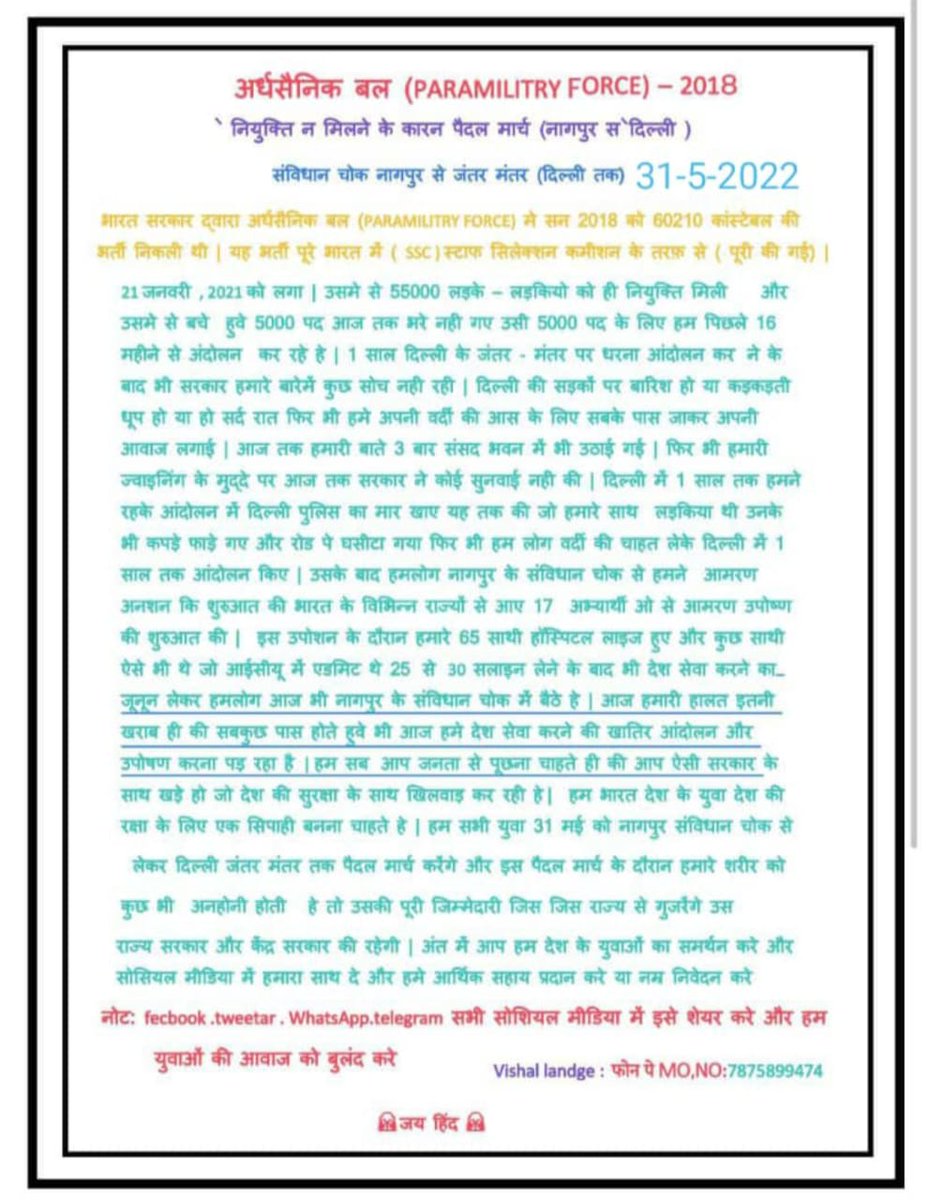 अर्धसैनिक बल (PARAMILITRY FORCE) – 2018
` नियुक्ति न मिलने के कारन पैदल मार्च (नागपुर स`दिल्ली )
संविधान चोक नागपुर से जंतर मंतर (दिल्ली तक) 31-5-2022
भारत सरकार द्वारा अर्धसैनिक बल (PARAMILITRY FORCE) मे सन 2018 को 60210 कांस्टेबल की
भर्ती निकली थी | यह भर्ती पूरे भारत में ( SSC)स्टाफ सिलेक्शन कमीशन के तरफ़ से ( पूरी की गई) |
21 जनवरी , 2021 को लगा | उसमे से 55000 लड़के – लड़कियो को ही नियुक्ति मिली और
उसमे से बचे हुवे 5000 पद आज तक भरे नही गए उसी 5000 पद के लिए हम पिछले 16
महीने से अंदोलन कर रहे हे | 1 साल दिल्ली के जंतर - मंतर पर धरना आंदोलन कर ने के
बाद भी सरकार हमारे बारेमें कुछ सोच नही रही | दिल्ली की सड़कों पर बारिश हो या कड़कड़ती
धूप हो या हो सर्द रात फिर भी हमे अपनी वर्दी की आस के लिए सबके पास जाकर अपनी
आवाज लगाई | आज तक हमारी बाते 3 बार संसद भवन में भी उठाई गई | फिर भी हमारी
ज्वाइनिंग के मुद्दे पर आज तक सरकार ने कोई सुनवाई नही की | दिल्ली में 1 साल तक हमने
रहके आंदोलन में दिल्ली पुलिस का मार खाए यह तक की जो हमारे साथ लड़किया थी उनके
भी कपड़े फाड़े गए और रोड पे घसीटा गया फिर भी हम लोग वर्दी की चाहत लेके दिल्ली में 1
साल तक आंदोलन किए | उसके बाद हमलोग नागपुर के संविधान चोक से हमने आमरण
अनशन कि शुरुआत की भारत के विभिन्न राज्यों से आए 17 अभ्यार्थी ओ से आमरण उपोष्ण
की शुरुआत की | इस उपोशन के दौरान हमारे 65 साथी हॉस्पिटल लाइज हुए और कुछ साथी
ऐसे भी थे जो आईसीयू में एडमिट थे 25 से 30 सलाइन लेने के बाद भी देश सेवा करने का
जूनून लेकर हमलोग आज भी नागपुर के संविधान चोक में बैठे हे | आज हमारी हालत इतनी
खराब ही की सबकुछ पास होते हुवे भी आज हमे देश सेवा करने की खातिर आंदोलन और
उपोषण करना पड़ रहा है |हम सब आप जनता से पूछना चाहते ही की आप ऐसी सरकार के
साथ खड़े हो जो देश की सुरक्षा के साथ खिलवाड़ कर रही हे| हम भारत देश के युवा देश की
रक्षा के लिए एक सिपाही बनना चाहते हे | हम सभी युवा 31 मई को नागपुर संविधान चोक से
लेकर दिल्ली जंतर मंतर तक पैदल मार्च करेंगे और इस पैदल मार्च के दौरान हमारे शरीर को
कुछ भी अनहोनी होती हे तो उसकी पूरी जिम्मेदारी जिस जिस राज्य से गुजरेंगे उस
राज्य सरकार और केंद्र सरकार की रहेगी | अंत में आप हम देश के युवाओं का समर्थन करे और
सोसियल मीडिया में हमारा साथ दे और हमे आर्थिक सहाय प्रदान करे या नम्र निवेदन करे
नोट: fecbook .tweetar . WhatsApp.telegram सभी सोशियल मीडिया में इसे शेयर करे और हम
युवाओं की आवाज को बुलंद करे
Vishal landge : फोन पे MO,NO:7875899474
जय हिंद